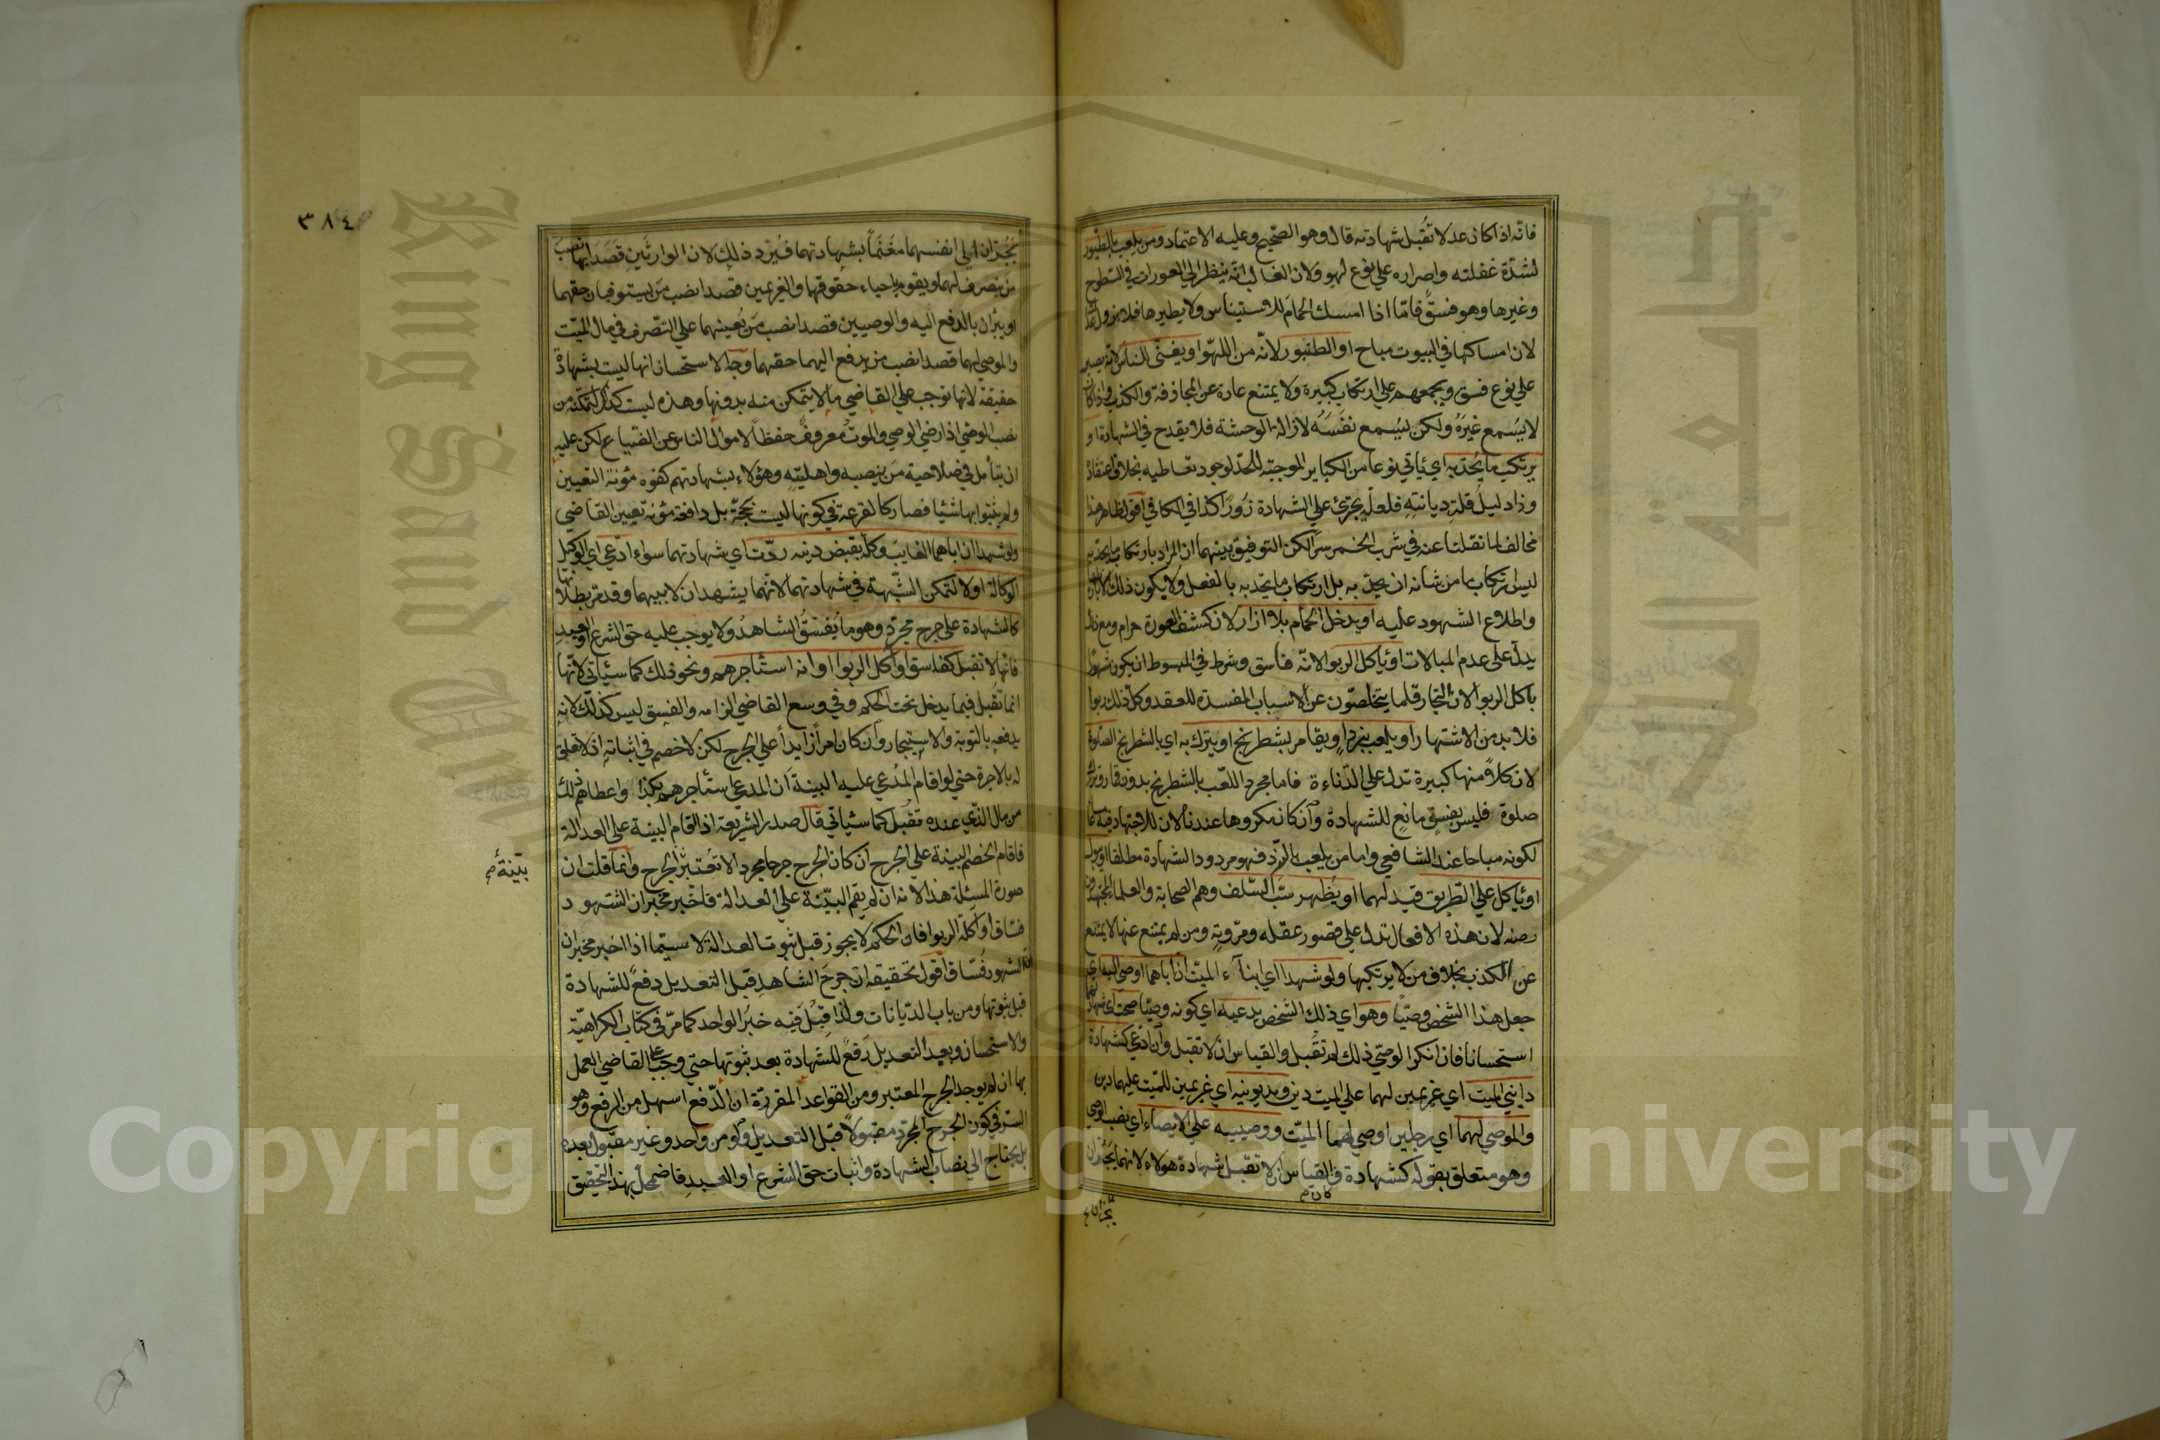 فانه اذا كان عدلا تقبل شهادته قال وهو الصحيح وعليه الاعتماد ومن يلعب بالطيور
لشدة غفلته واصراره علي نوع لهو ولان الغالب انه ينظر الي العورات في السطوح
وغيرها وهو فسق فامّا اذا امسك الحمام للاستيناس ولا يطيرها فلا يزول
لان امساكها في البيوت مباح او الطنبور لانّه من اللهو او يغنّي للناس لانه يصير
علي نوع فسق ويجمعهم علي ارتكاب كبيرة ولا يمتنع عادة عن المجازفة والكذب
لا يسمع غيره ولكن يسمع نفسه لازالة الوحشة فلا يقدح في الشهادة او
يرتكب ما يُحَدّ به اي يأتي نوعا من الكباير الموجبة للحد لوجود تعاطيه بخلاف اعتقاده
وذا دليل قلة ديانته فلعلّه يجترئ علي الشهادة زورًا كذا في الكافي اقول ظاهره هذا
مخالف لما نقلنا عنه في شرب الخمر سرًا لكن التوفيق بينهما ان المراد بارتكاب ما يحد به
ليس ارتكاب ما من شانه ان يحدّ به بل ارتكاب ما يحدّ به بالفعل ولا يكون ذلك
واطلاع الشهود عليه او يدخل الحمام بلا ازار لان كشف العورة حرام ومع ذلك
يدلّ على عدم المبالات او يأكل الربوا لانّه فاسق وشرط في المبسوط ان يكون مشهورا
باكل الربوا لان التجار قلما يتخلصون عن الاسباب المفسدة للعقد وكل ذلك ربوا
فلا بد من الاشتهار او يلعب بنرد او يقامر بشطرنج او يترك به اي بالشطرنج الصلوة
لان كلاً منها كبيرة تدل علي الدناءة فاما مجرد اللعب بالشطرنج بدون قمار وترك
صلوة فليس بفسق مانع للشهادة وان كان مكروها عندنا لان للاجتهاد فيه
لكونه مباحا عند الشافعي واما من يلعب بالنرد فهو مردود الشهادة مطلقا او يبول
او يأكل علي الطريق قيد لهما او يُظهر سبّ السّلف وهم الصحابة والعلماء المجتهدون
لان هذه الافعال تدل علي قصور عقله ومروته ومن لم يمتنع عنها لا يمتنع
عن الكذب بخلاف من لا يرتكبها ولو شهدا اي ابناء الميت ان اباهما اوصي اليه اي
جعل هذا الشخص وصيًّا وهو اي ذلك الشخص يدعيه اي كونه وصيّا صحت اي شهادتهما
استحسانا فان انكر الوصي ذلك لم تقبل والقياس ان لا تقبل وان ادعي كشهادة
دايني الميت اي غريمين لهما علي الميت دين ومديونيه اي غريمين للميّت عليهما دين
والموصي لهما اي رجلين اوصي لهما الميّت ووصيّيه علي الايصاء اي نصب الوصي
وهو متعلق بقوله كشهادة والقياس ان لا تقبل شهادة هولاء لانهما يجرّان
يجرّان
٣٨٤
يجرّان الي انفسهما مغنمًا بشهادتهما فيرد ذلك لان الوارثين قصدا بها نصب
من يتصرف لهما ويقوم باحياء حقوقهما والغريمين قصدا نصب من يستوفيان حقهما
او يبرأن بالدفع اليه والوصيين قصدا نصب من يعينهما علي التصرف في مال الميّت
والموصي لهما قصدا نصب من يدفع اليهما حقهما وجه الاستحسان انها ليست بشهادة
حقيقة لانها توجب علي القاضي ما لا يتمكن منه بدونها وهذه ليست كذلك لتمكنه من
نصب الوصي اذا رضي الوصي والموت معروف حفظًا لاموال الناس عن الضياع لكن عليه
ان يتأمل في صلاحية من ينصبه واهليته وهؤلاء بشهادتهم كفوه مؤنة التعيين
ولم يثبتوا بها شيئا فصار كالقرعة في كونها ليست بحجّة بل دافعة مؤنة تعيين القاضي
ولو شهدا ان اباهما الغايب وكله بقبض دينه ردّت اي شهادتهما سواء ادّعي اي الوكيل
الوكالة اولا لتمكن الشّبهة في شهادتهما لانهما يشهدان لابيهما وقد مرّ بطلانها
كالشهادة علي جرح مجرّد وهو ما يُفسّق الشاهد ولا يوجب عليه حق الشرع او العبد
فانها لا تقبل كفاسق او آكل الربوا او انه استأجرهم ونحو ذلك كما سيأتي لانّها
انما تقبل فيما يدخل تحت الحكم وفي وسع القاضي الزامه والفسق ليس كذلك لانه
يدفعه بالتوبة والاستيجار وان كان امرًا زايدا علي الجرح لكن لا خصم في اثباته اذ لا تعلق
له بالاجرة حتي لو اقام المدّعي عليه البينة ان المدعي استأجرهم بكذا واعطاهم ذلك
من مال الذي عنده تقبل كما سيأتي قال صدر الشريعة اذا اقام البينة علي العدالة
فاقام الخصم البينة علي الجرح ان كان الجرح جرحا مجردا لا تعتبر بيّنة الجرح وانما قلت ان
بيّنة
صورة المسئلة هذا لانه ان لم يقم البيّنة علي العدالة فاخبر مخبران ان الشهود
فسّاق او اكلة الربوا فان الحكم لا يجوز قبل ثبوت العدالة لا سيّما اذا اخبر مخبران
ان الشهود فُسّاق اقول تحقيقه ان جرح الشاهد قبل التعديل دفع للشهادة
قبل ثبوتها ومن باب الديانات ولذا قُبل فيه خبر الواحد كما مرّ في كتاب الكراهيّة
والاستحسان وبعد التعديل رفع للشهادة بعد ثبوتها حتي وجب علي القاضي العمل
بها ان لم يوجد الجرح المعتبر ومن القواعد المقررة ان الدّفع اسهل من الرفع وهو
السّر في كون الجرح المجرّد مقبولا قبل التعديل ولو من واحد وغير مقبول بعده
بل يحتاج الي نصاب الشهادة واثبات حق الشرع او العبد فاضمحلّ بهذا التحقيق
King Saud University
جامعة الملك سعود
Copyright © King Saud University